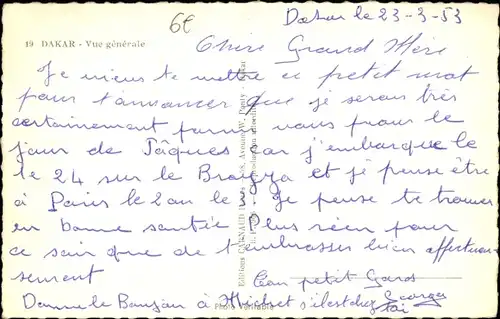 6€
Dakar le 23-3-53
19 DAKAR - Vue générale
Chère Grand Mère
Je viens te mettre ce petit mot
pour t'annoncer que je serais très
certainement parmi vous pour le
jour de Pâques car j'embarque le
le 24 sur le Brazza et je pense être
à Paris le 2 ou le 3. Je pense te trouver
en bonne santée Plus rien pour
ce soir que de t'embrasser bien affectueu
sement
Ton petit Gars
Donne le Bonjour à Michel s'il est chez Georges
toi
Photo Véritable